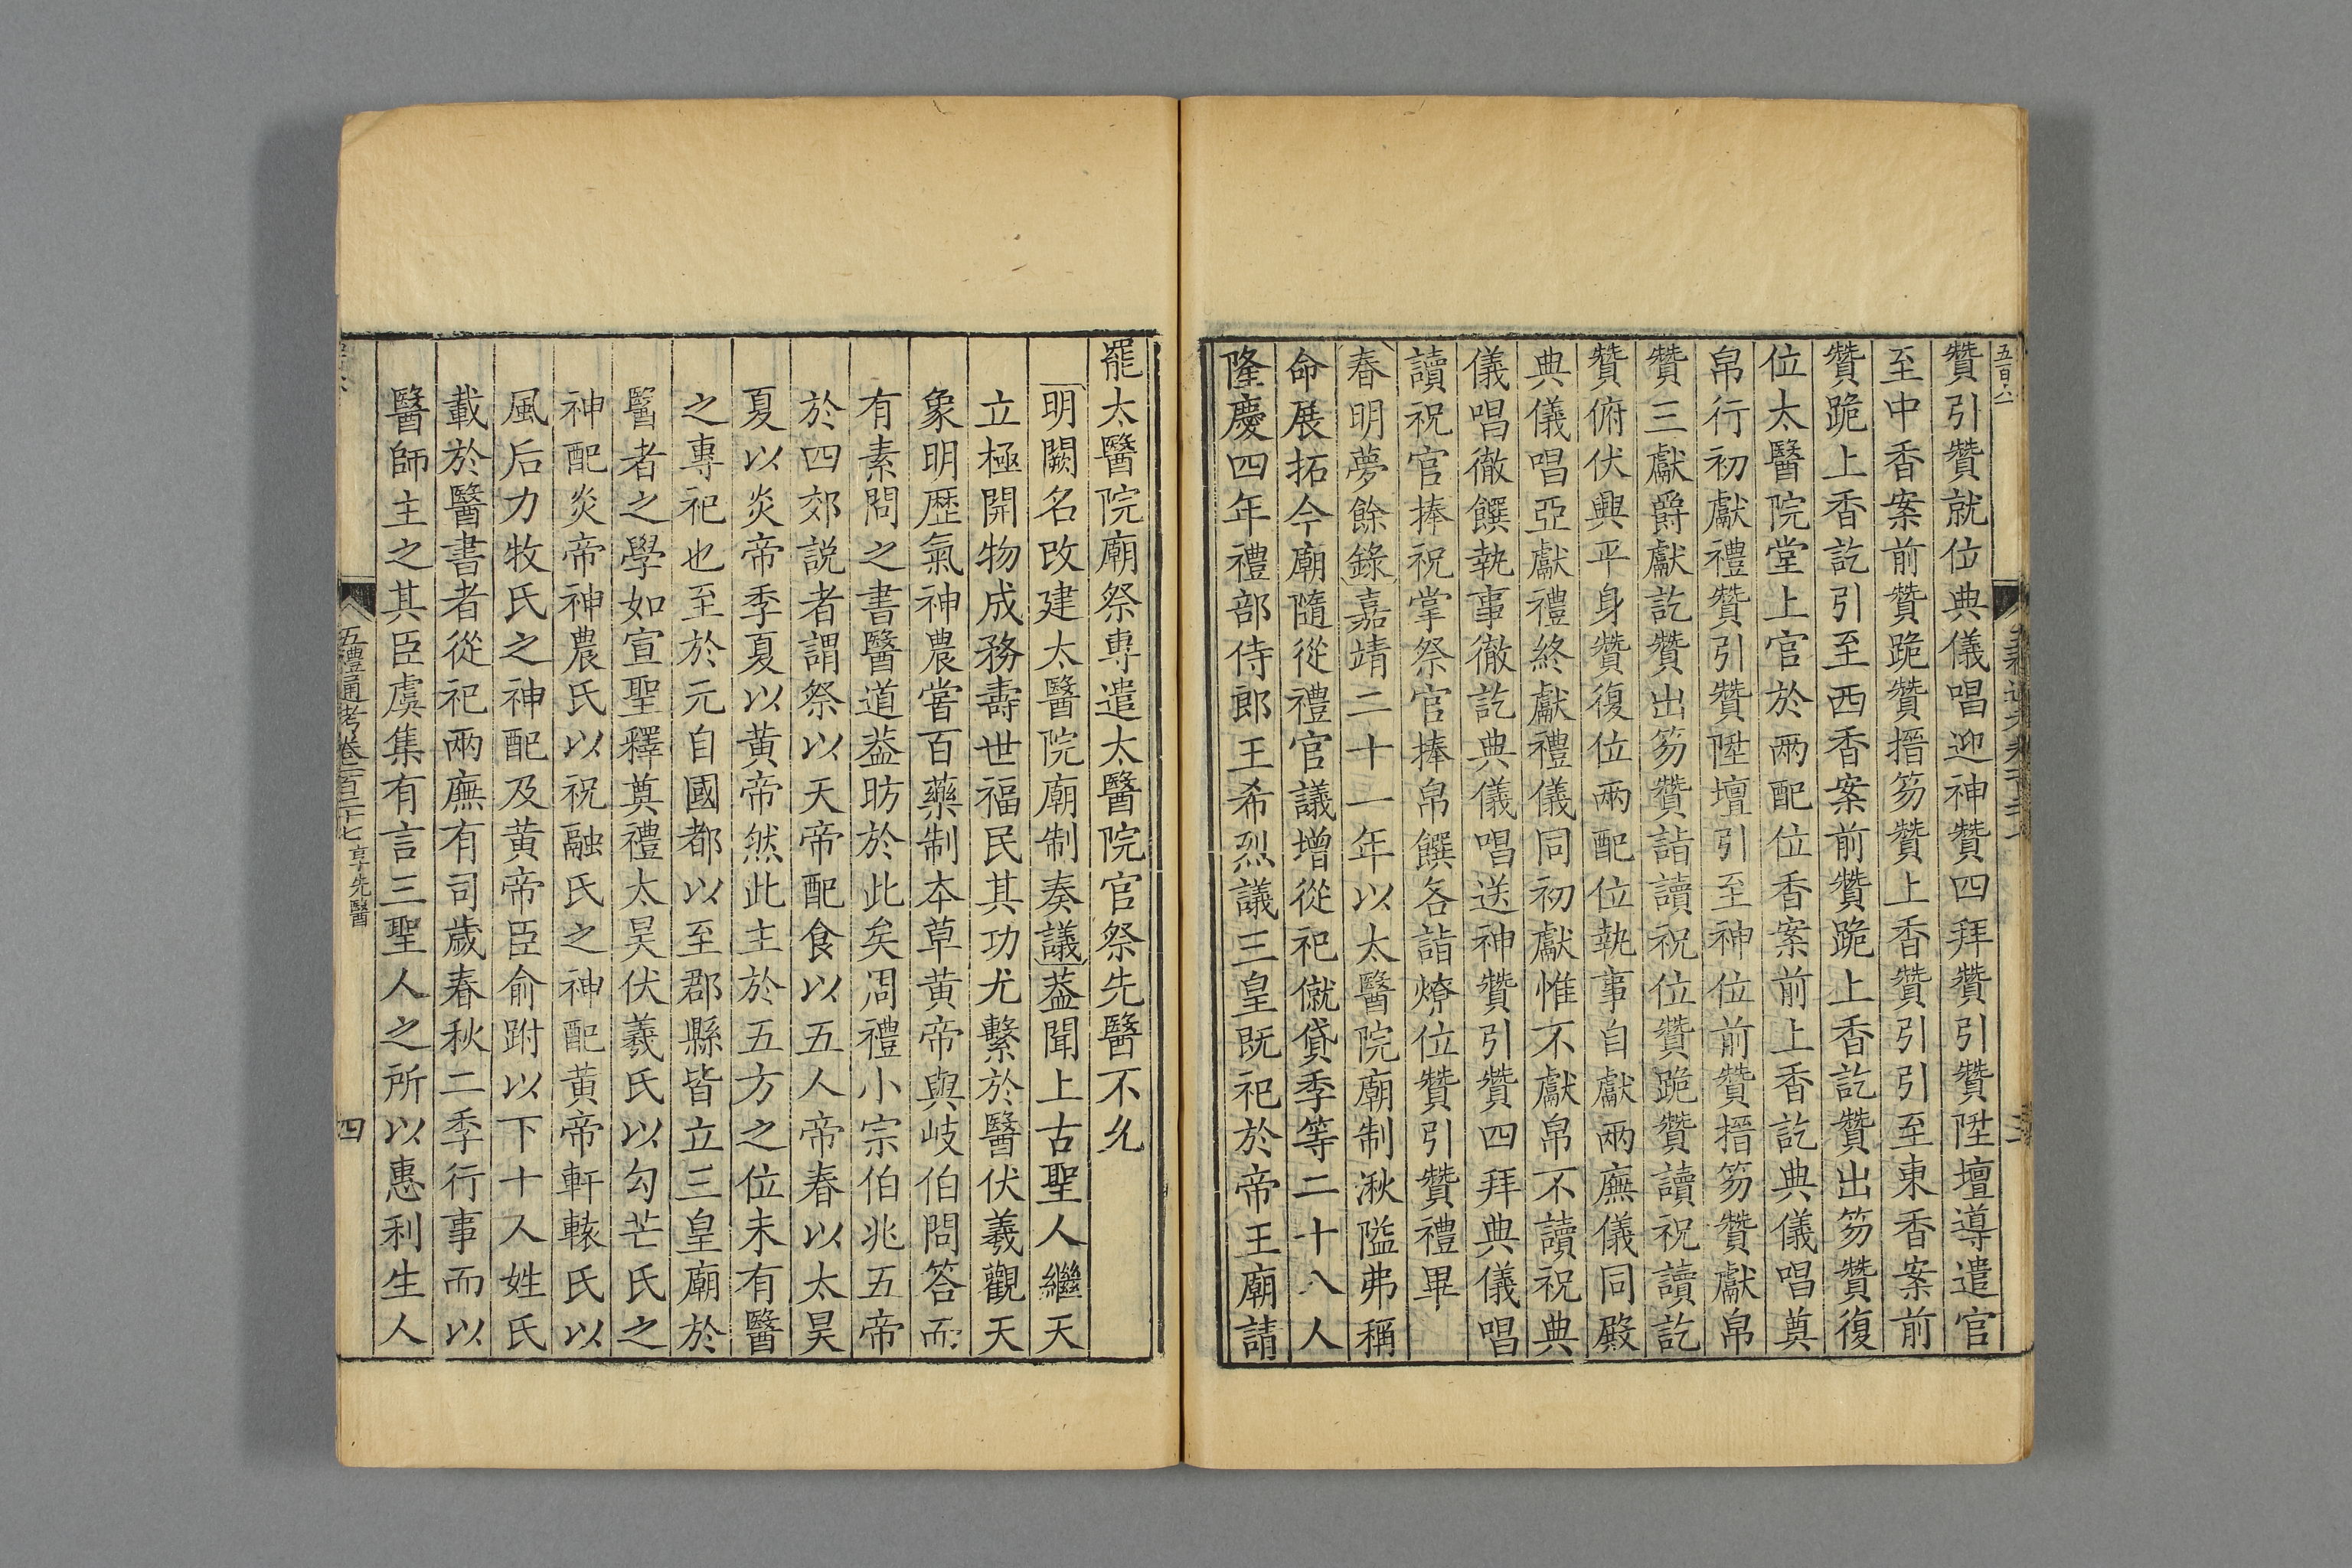 五百八
贊引贊就位典儀唱迎神贊四拜贊引贊陞壇導遣官
至中香案前贊跪贊搢笏贊上香贊引引至東香案前
贊跪上香訖引至西香案前贊跪上香訖贊出笏贊復
位太醫院堂上官於兩配位香案前上香訖典儀唱奠
帛行初獻禮贊引贊陞壇引至神位前贊搢笏贊獻帛
贊三獻爵獻訖贊出笏贊詣讀祝位贊跪贊讀祝讀訖
贊俯伏興平身贊復位兩配位執事自獻兩廡儀同殿
典儀唱亞獻禮終獻禮儀同初獻惟不獻帛不讀祝典
儀唱徹饌執事徹訖典儀唱送神贊引贊四拜典儀唱
讀祝官捧祝掌祭官捧帛饌各詣燎位贊引贊禮畢
春明夢餘錄嘉靖二十一年以太醫院廟制湫隘弗稱
命展拓今廟隨從禮官議增從祀僦貸季等二十八人
隆慶四年禮部侍郎王希烈議三皇既祀於帝王廟請
罷太醫院廟祭專遣太醫院官祭先醫不允
明闕名改建太醫院廟制奏議葢聞上古聖人繼天
立極開物成務壽世福民其功尤繫於醫伏羲觀天
象明歷氣神農嘗百藥制本草黃帝與岐伯問答而
有素問之書醫道葢昉於此矣周禮小宗伯兆五帝
於四郊說者謂祭以天帝配食以五人帝春以太昊
夏以炎帝季夏以黃帝然此主於五方之位未有醫
之專祀也至於元自國都以至郡縣皆立三皇廟於
醫者之學如宣聖釋奠禮太昊伏羲氏以勾芒氏之
神配炎帝神農氏以祝融氏之神配黃帝軒轅氏以
風后力牧氏之神配及黃帝臣俞跗以下十人姓氏
載於醫書者從祀兩廡有司歲春秋二季行事而以
醫師主之其臣虞集有言三聖人之所以惠利生人
五禮通考卷一百二十七 吉十先醫
四